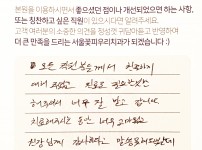 본원을 이용하시면서 좋으셨던 점이나 개선되었으면 하는 사항,
또는 칭찬하고 싶은 직원이 있으시다면 알려주세요.
고객 여러분의 소중한 의견을 정성껏 귀담아듣고 반영하여
더 큰 만족을 드리는 서울꽃피우리치과가 되겠습니다 :)
모든 직원분들께서 친절하게
대해 주셨고 진료도 필요한것만
해주셔서 너무 잘 받고 갑니다.
치료해주시는 분도 너무 고마웠고
감사하다고 말씀드려야겠네요